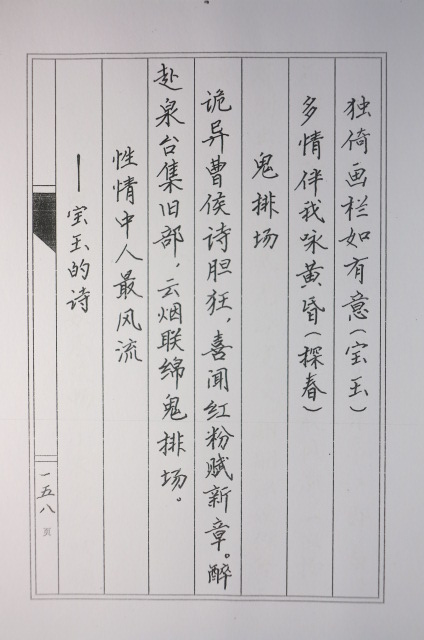 独倚画栏如有意(宝玉)
多情伴我咏黄昏(探春)
鬼排场
诡异曹侯诗胆狂，喜闻红粉赋新章。醉
赴泉台集旧部，云烟联绵鬼排场。
性情中人最风流
——宝玉的诗
一五八
页